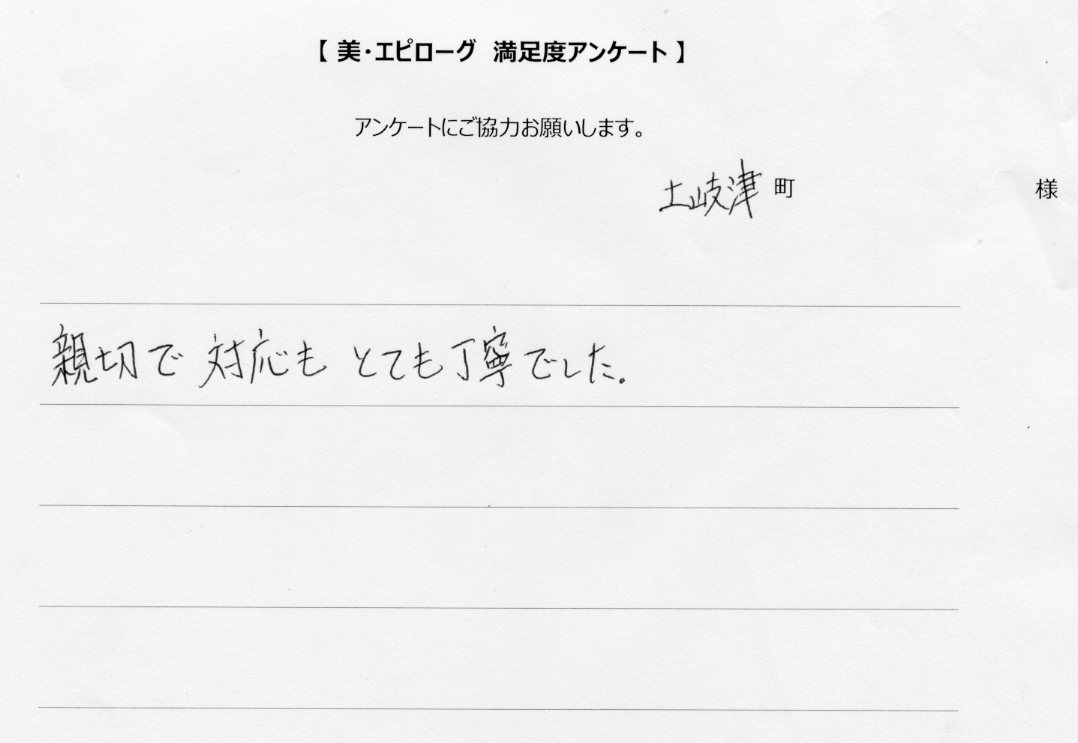 【 美・エピローグ 満足度アンケート 】
アンケートにご協力お願いします。
土岐津町 様
親切で 対応も とても丁寧でした.